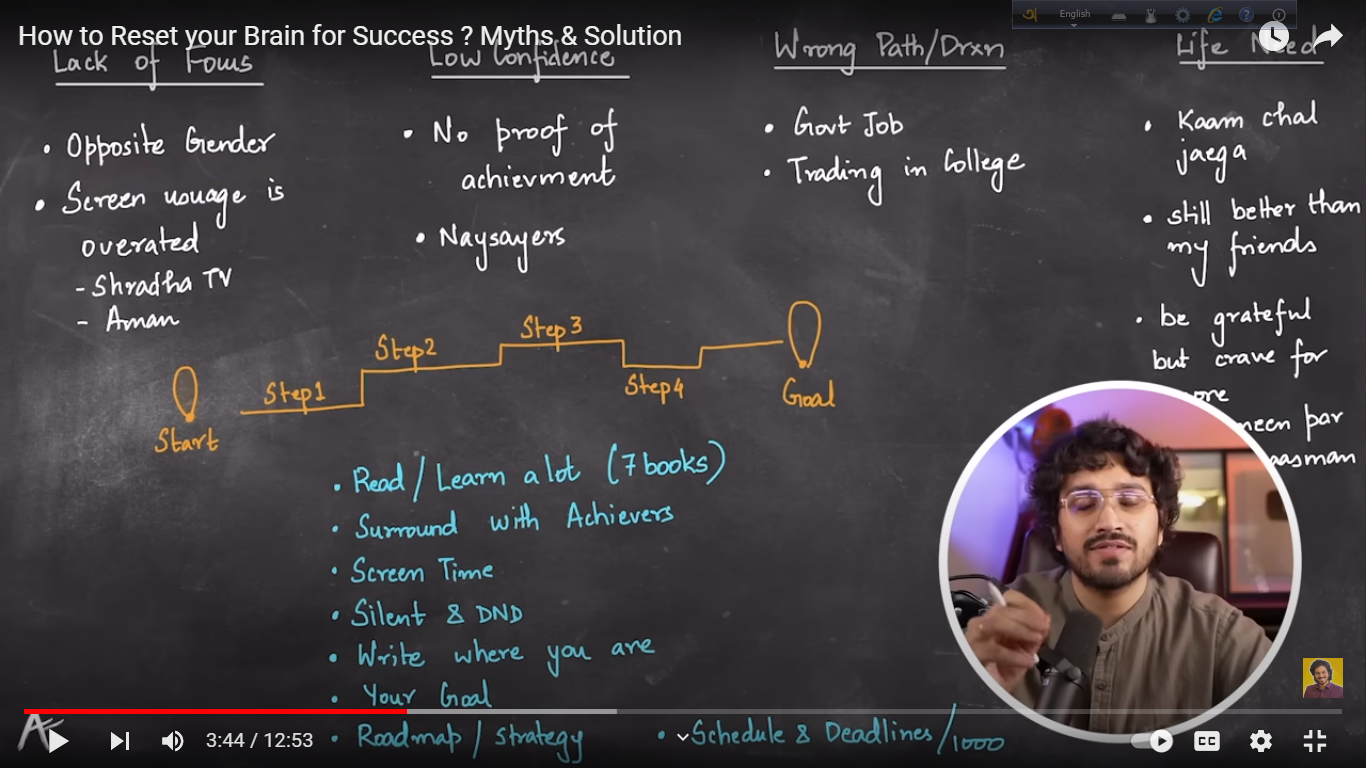 How to Reset your Brain for Success ? Myths & Solution
English
Lack of Focus
• Opposite Gender
• Screen usuage is
overated
- Shradha TV
- Aman
Low Confidence
• No proof of
achievment
• Naysayers
Wrong Path/Drxn
• Govt Job
• Trading in College
Life Need
• Kaam chal
jaega
• still better than
my friends
• be grateful
but crave for
ore
neen par
aasman
Start
Step1
Step2
Step3
Step4
Goal
• Read / Learn a lot (7 books)
• Surround with Achievers
• Screen Time
• Silent & DND
• Write where you are
• Your Goal
• Roadmap / strategy
• Schedule & Deadlines / 1000
3:44 / 12:53
CC